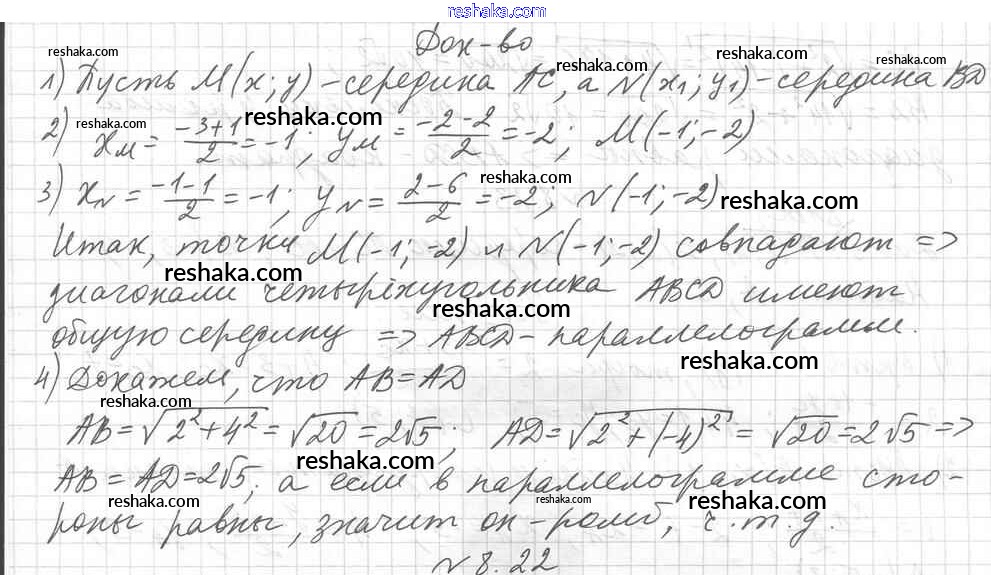 reshaka.com
Док-во
reshaka.com reshaka.com reshaka.com
1) Пусть M(x; y) -середина AC, а N(x₁; y₁) -середина BD
2) reshaka.com x_M = (-3+1)/2 = -1; y_M = (-2-2)/2 = -2; M(-1; -2)
reshaka.com
3) x_N = (-1-1)/2 = -1; y_N = (2-6)/2 = -2; N(-1; -2)
reshaka.com
reshaka.com
Итак, точки M(-1; -2) и N(-1; -2) совпадают =>
reshaka.com
диагонали четырёхугольника ABCD имеют
reshaka.com
общую середину => ABCD - параллелограмм.
reshaka.com
4) Докажем, что AB = AD
reshaka.com
AB = √(2² + 4²) = √20 = 2√5; AD = √(2² + (-4)²) = √20 = 2√5 =>
reshaka.com
AB = AD = 2√5; а если в параллелограмме сто-
reshaka.com reshaka.com reshaka.com
роны равны, значит он - ромб, ч.т.д.
№ 8.22
reshaka.com